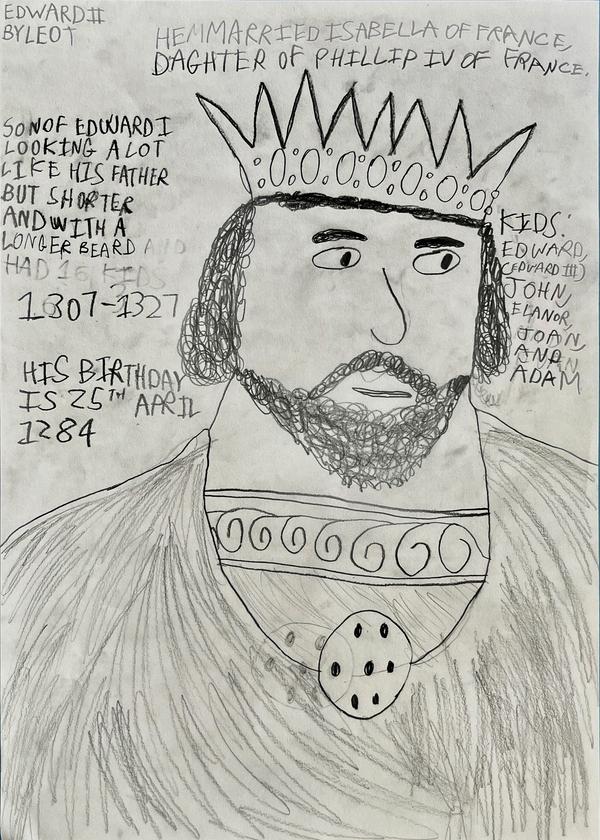 EDWARD II
BY LEO T
HE MMARRIED ISABELLA OF FRANCE,
DAGHTER OF PHILLIP IV OF FRANCE.
SON OF EDWARD I
LOOKING A LOT
LIKE HIS FATHER
BUT SHORTER
AND WITH A
LONGER BEARD AND
HAD 16 KIDS
1307-1327
HIS BIRTHDAY
IS 25TH APRIL
1284
KIDS:
EDWARD,
(EDWARD III)
JOHN,
ELANOR,
JOAN,
AND
ADAM